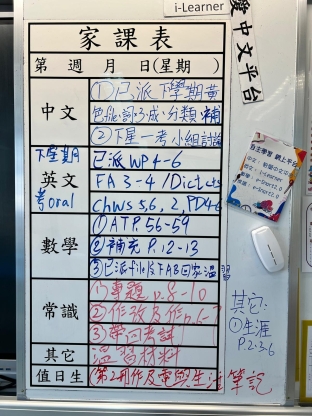 i-Learner
愛中文平台
家課表
第 週 月 日(星期 )
中文
①已派下學期黃
色 詞 成 分類 補
②下星一考小組討論
下星期
考oral
英文
已派WP4-6
FA 3-4 / Dict
Chws 5,6, 2, PD4-6
數學
①ATP.56-59
②補充 P.12-13
③已派file及FAB回家溫習
常識
①專題 p.8-10
②作 改 作p.6-7
③帶回考試
其它
溫習材料
值日生
(第2冊作及電與生活 筆記
自主學習 網上平台
其它:
①生涯
P.2,3,6